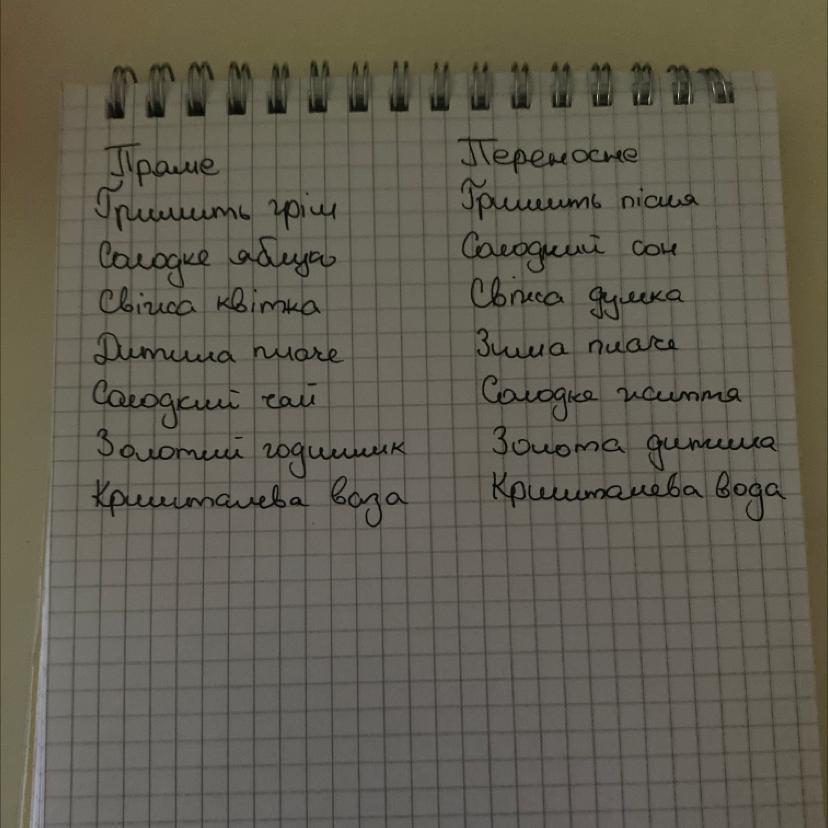 Пряме Переносне
Гримить грім Гримить пісня
Солодке яблуко Солодкий сон
Свіжа квітка Свіжа думка
Дитина плаче Зима плаче
Солодкий чай Солодке життя
Золотий годинник Золота дитина
Кришталева ваза Кришталева вода